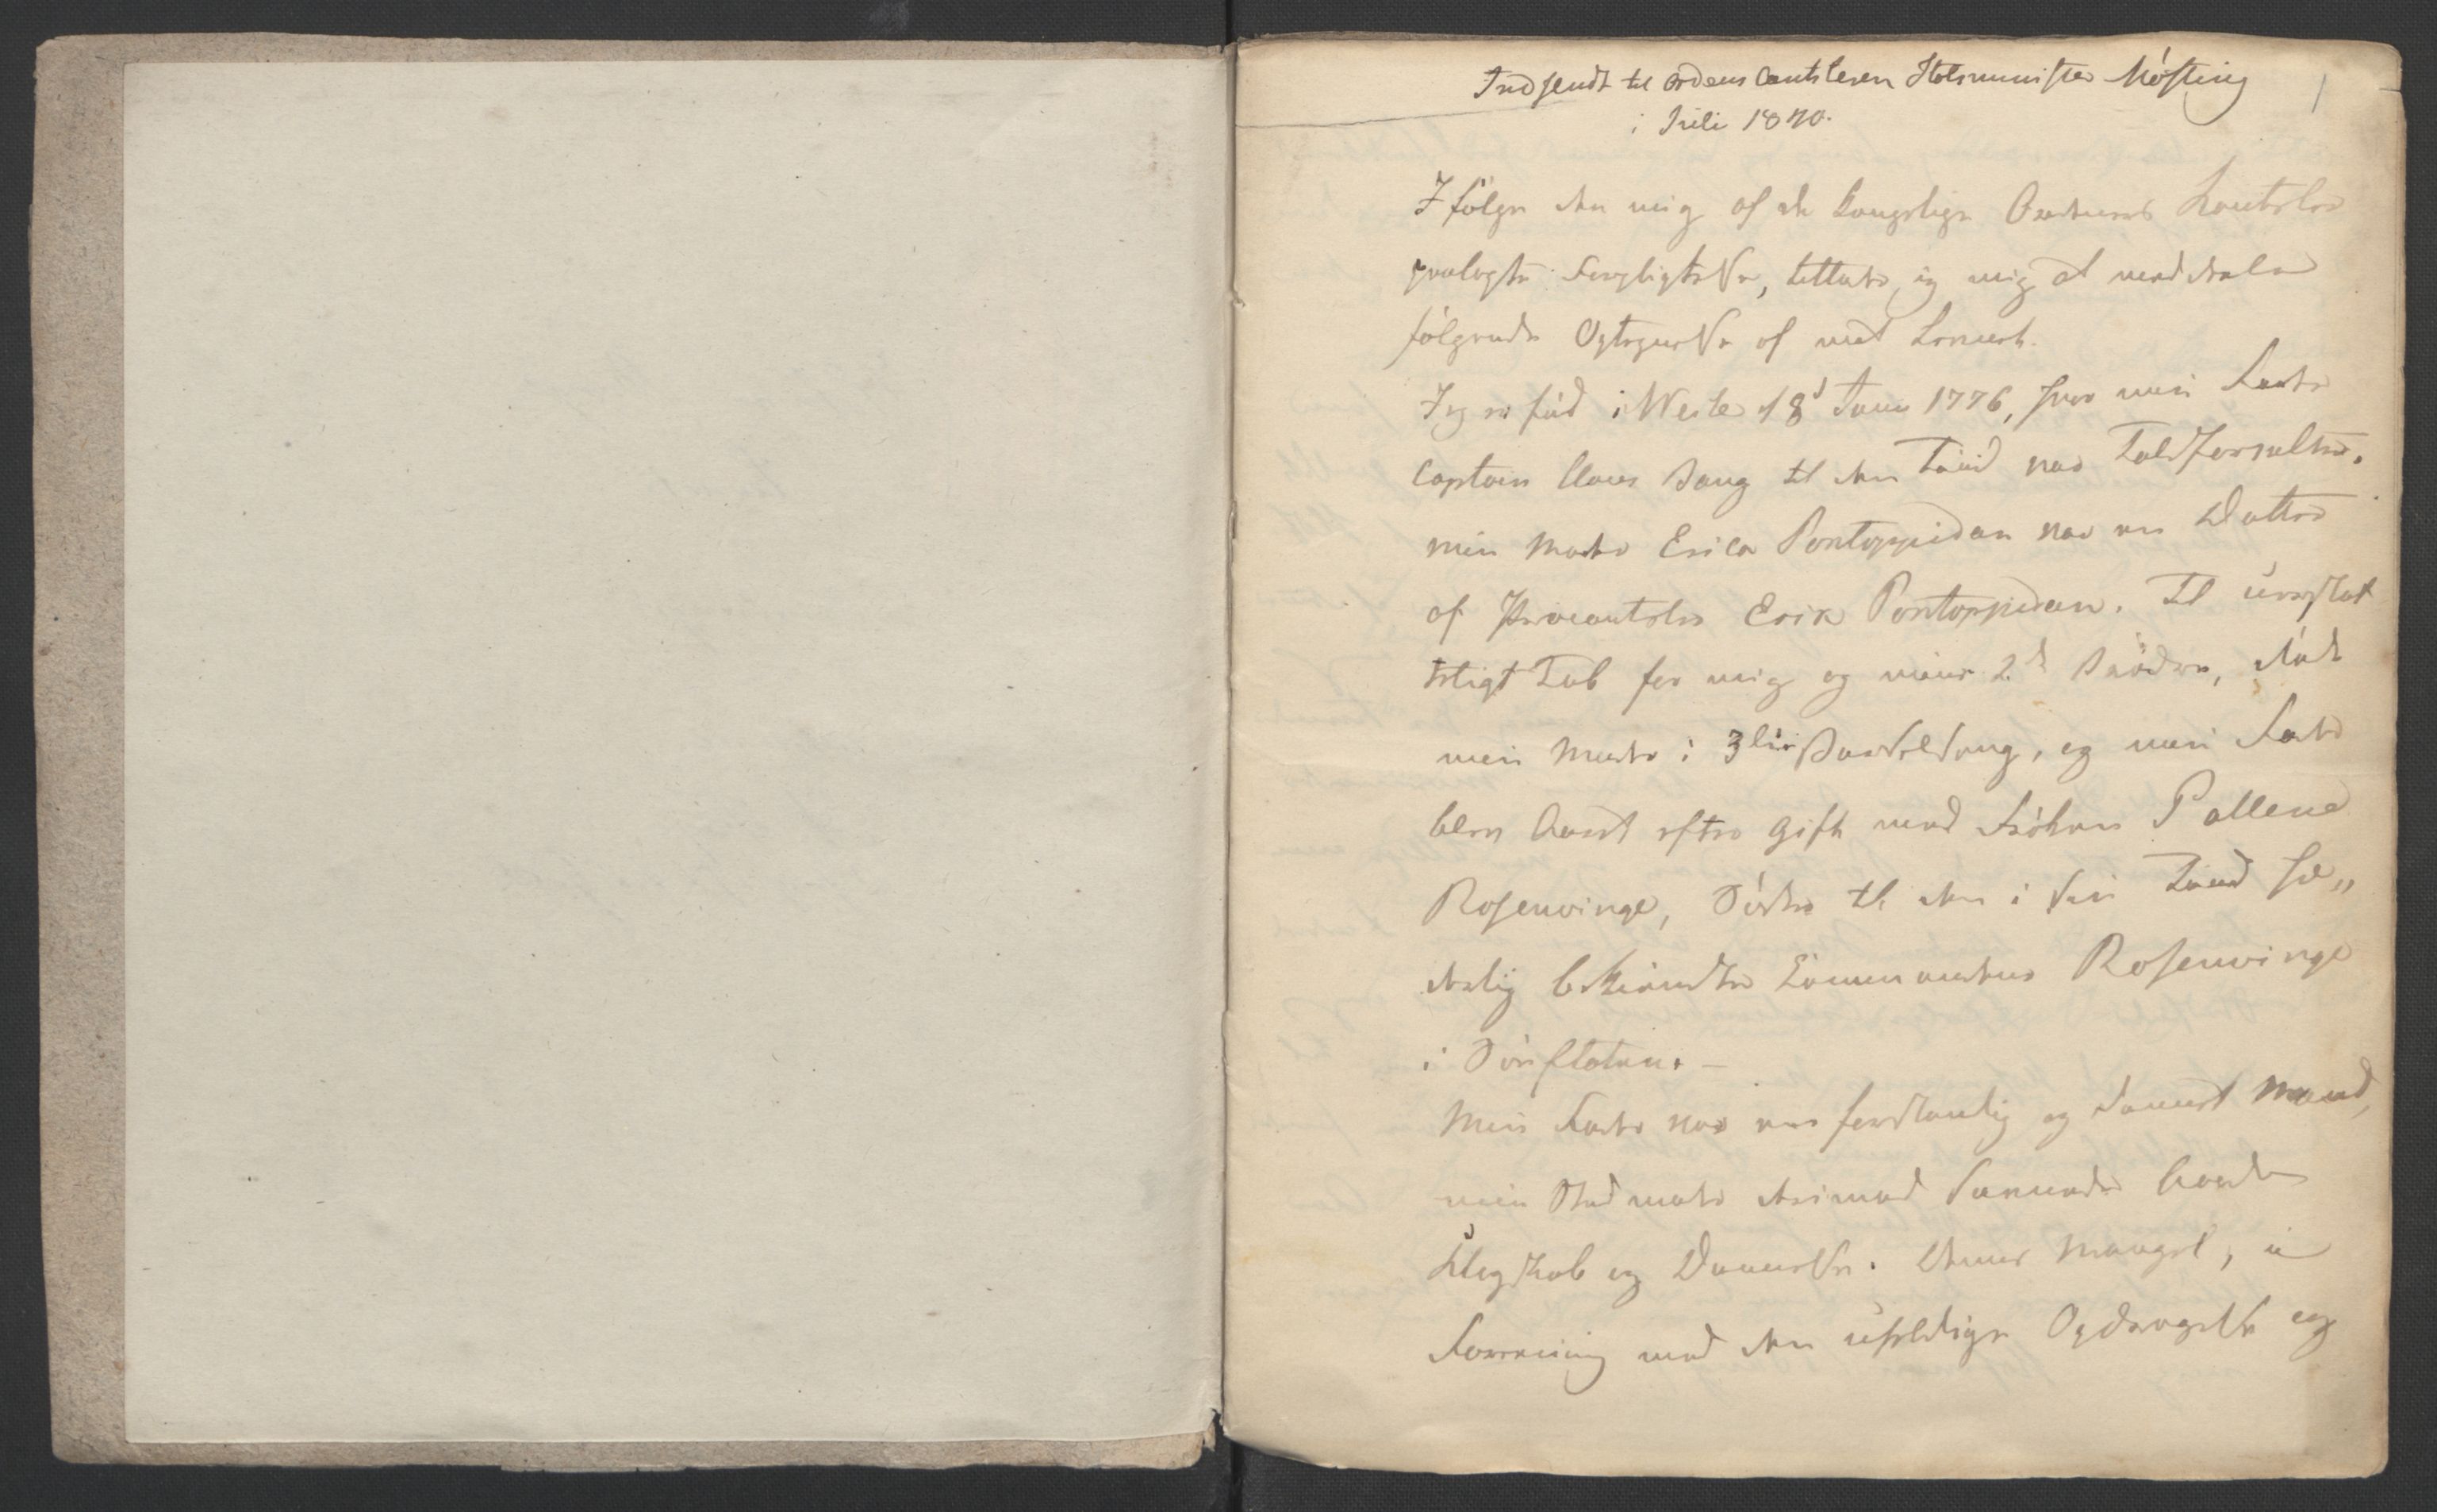 Indsendt til Ordens Cantsleren Statsminister Møsting
i Juli 1840.
1
Ifølge den mig af de kongelige Ordeners Kantsler
paalagte Forpligtelse, tillader jeg mig at meddele
følgende Optegnelse af mit Levnet.
Jeg er född i Weile 18d Juni 1776, hvor min Fader
Captain Claus Bang til den Tiid var Toldforvalter.
min Moder Erica Pontoppidan var en Datter
af Procantsler Erik Pontoppidan. Til uerstat
teligt Tab for mig og mine 2de Brödre, döde
min Moder i 3die Barselseng, og min Fader
blev Aaret efter gift med Fröken Pallene
Rosenvinge, Söster til den i sin Tiid hæ„
derlig bekiendte Commandeur Rosenvinge
i Söe Etaten. –
Min Fader var en forstandig og dannet Mand,
min Stedmoder derimod savnede baade
Kløgskab og Dannelse. Denne Mangel, i
Forening med den uheldige Opdragelse og